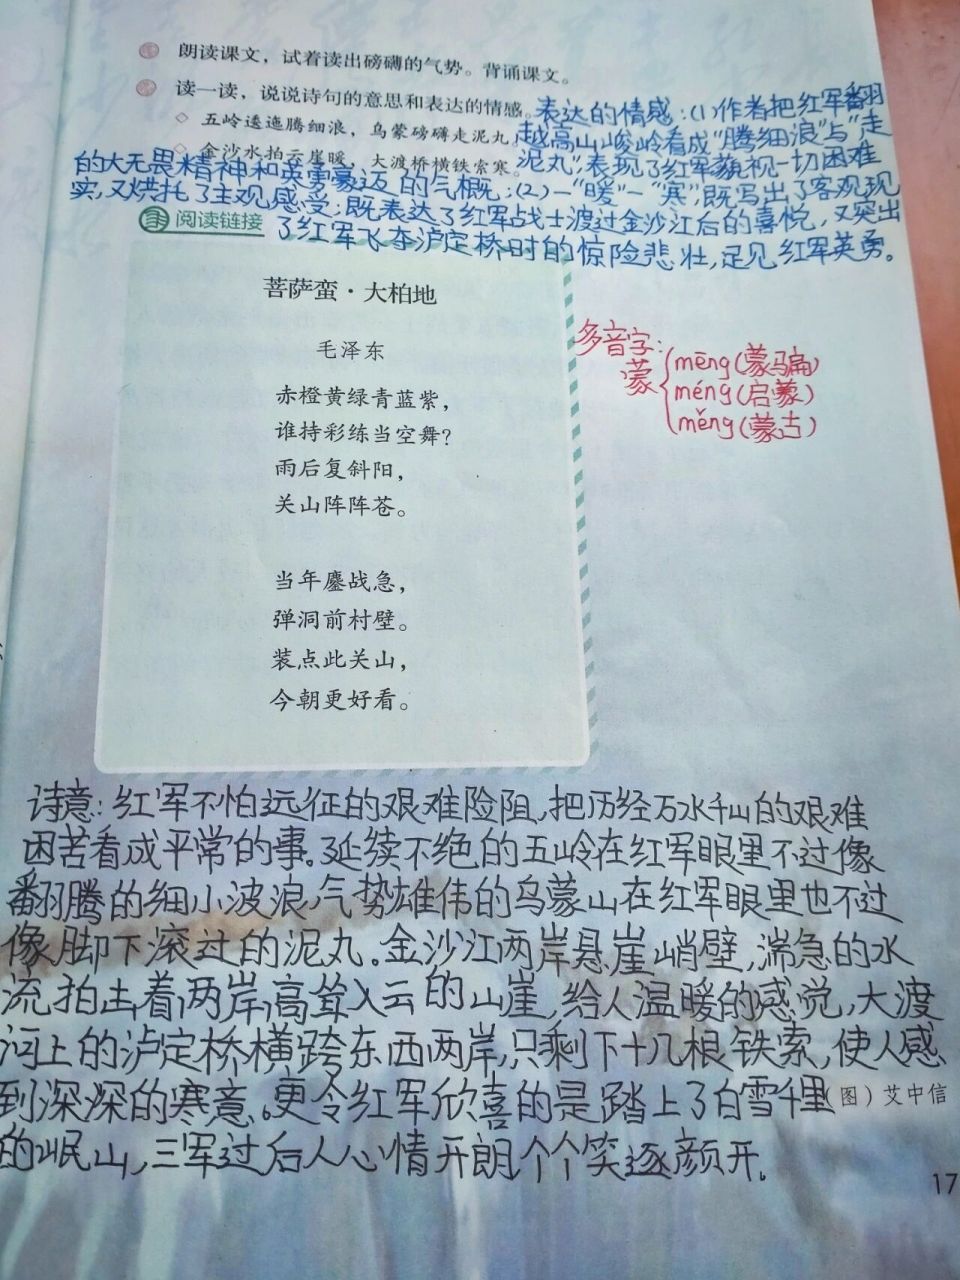 朗读课文，试着读出磅礴的气势。背诵课文。
读一读，说说诗句的意思和表达的情感。
五岭逶迤腾细浪，乌蒙磅礴走泥丸。
金沙水拍云崖暖，大渡桥横铁索寒。
表达的情感：(1)作者把红军翻
越高山峻岭看成“腾细浪”与“走
泥丸”，表现了红军藐视一切困难
的大无畏精神和英勇豪迈的气概；(2)一“暖”一“寒”，既写出了客观现
实，又烘托了主观感受；既表达了红军战士渡过金沙江后的喜悦，又突出
了红军飞夺泸定桥时的惊险悲壮，足见红军英勇。
阅读链接
菩萨蛮·大柏地
毛泽东
赤橙黄绿青蓝紫，
谁持彩练当空舞？
雨后复斜阳，
关山阵阵苍。
当年鏖战急，
弹洞前村壁。
装点此关山，
今朝更好看。
多音字：
蒙
mēng(蒙骗)
méng(启蒙)
měng(蒙古)
诗意：红军不怕远征的艰难险阻，把历经万水千山的艰难
困苦看成平常的事。延续不绝的五岭在红军眼里不过像
翻腾的细小波浪，气势雄伟的乌蒙山在红军眼里也不过
像脚下滚过的泥丸。金沙江两岸悬崖峭壁，湍急的水
流拍击着两岸高耸入云的山崖，给人温暖的感觉，大渡
河上的泸定桥横跨东西两岸，只剩下十几根铁索，使人感
到深深的寒意。更令红军欣喜的是踏上了白雪千里
的岷山，三军过后人人心情开朗个个笑逐颜开。
(图)艾中信
17